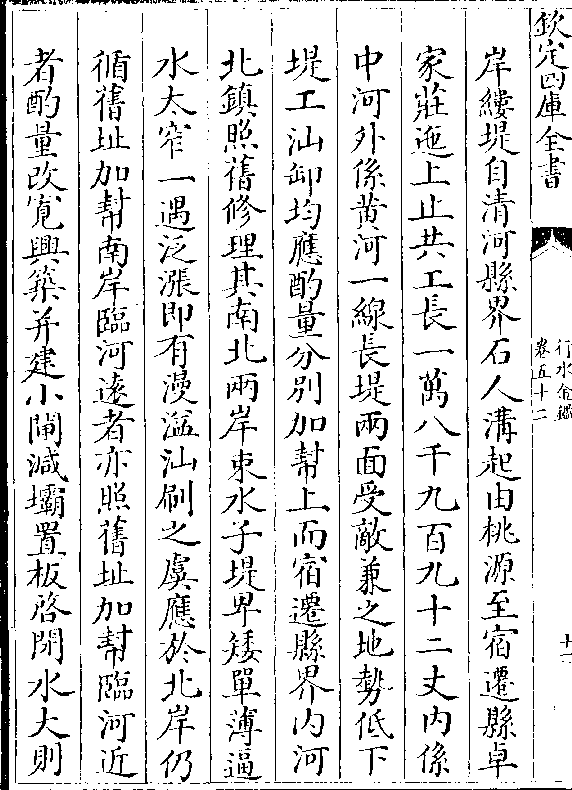 欽定四庫全書
行水金鑑
卷五十二
十一
岸縷堤自清河縣界石人溝起由桃源至宿遷縣卓
家莊迤上止共工長一萬八千九百九十二丈内係
中河外係黄河一線長堤兩面受敵兼之地勢低下
堤工汕卸均應酌量分别加幫上而宿遷縣界内河
北鎮照舊修理其南北兩岸束水子堤卑矮單薄逼
水太窄一遇泛漲即有漫溢汕刷之虞應於北岸仍
循舊址加幫南岸臨河遠者亦照舊址加幫臨河近
者酌量改寛興築并建小閘減壩置板啓閉水大則